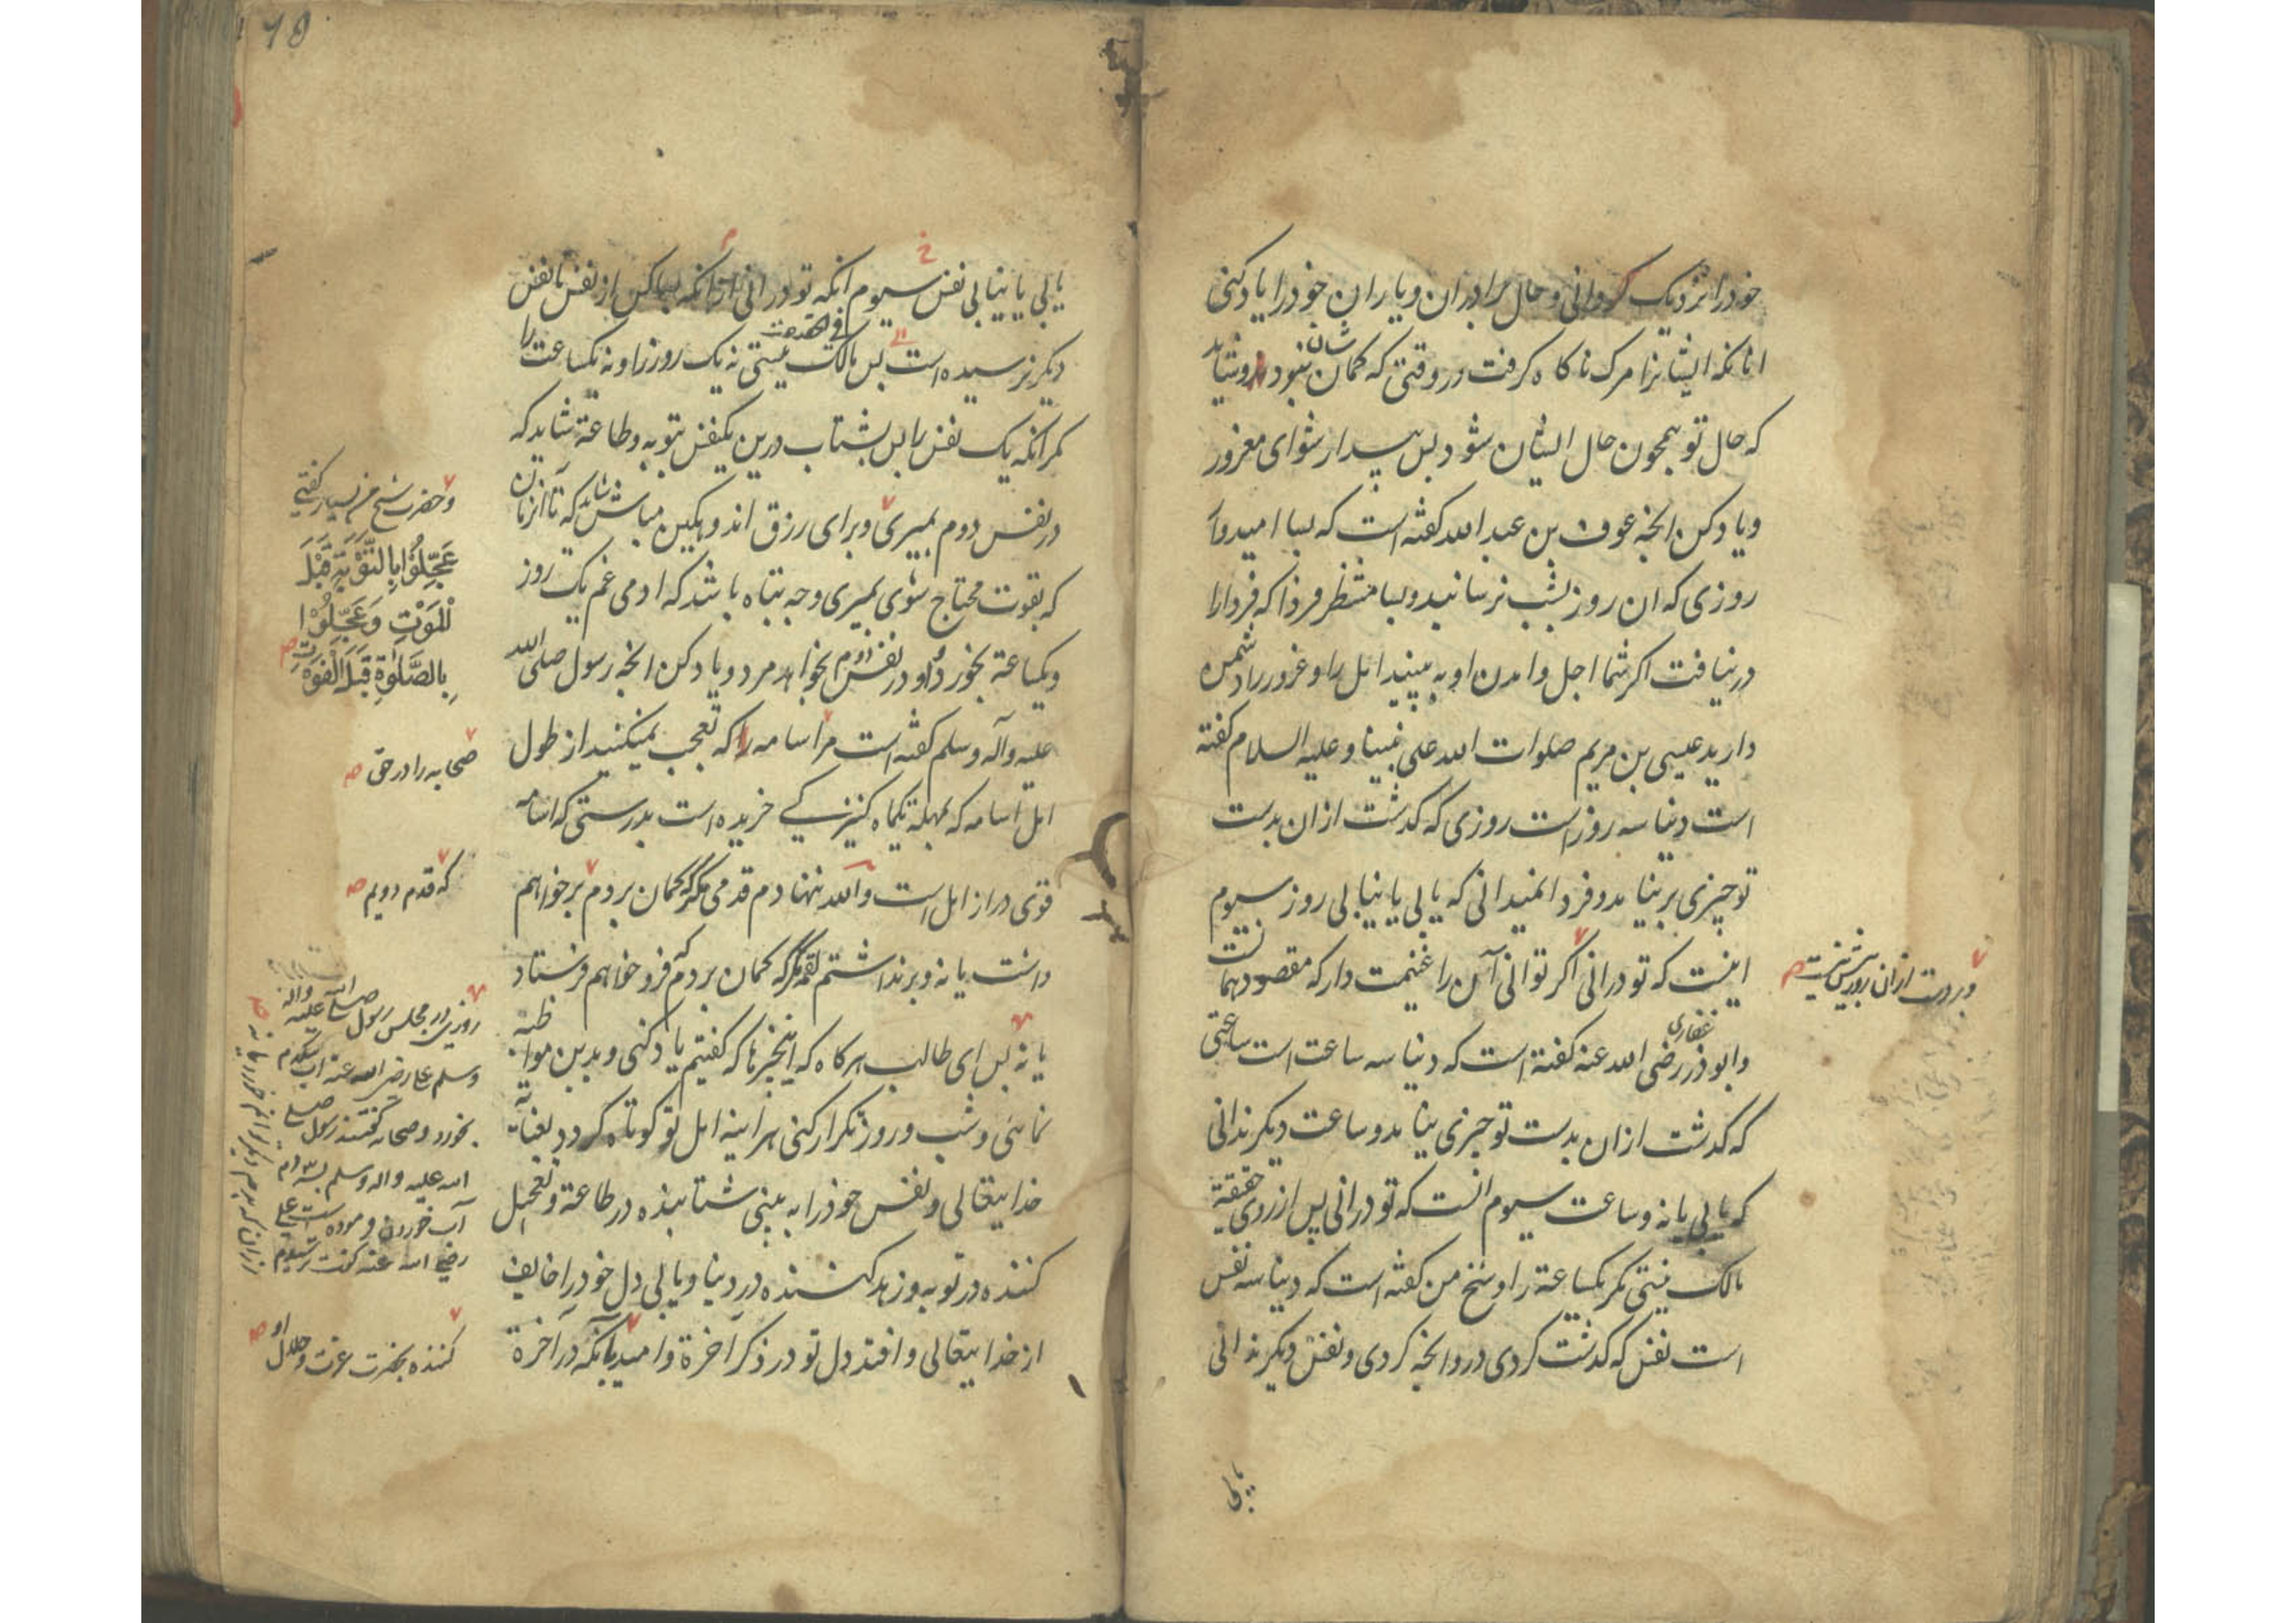 خود را نزدیک کردانی و حال برادران و یاران خود را یاد کنی
انانکه ایشانرا مرک ناکاه کرفت در وقتی که کمان شان نبود و شاید
که حال تو همچون حال ایشان شود پس بیدار شو ای مغرور
و یاد کن انچه عوف بن عبد الله کفته است که بسا امیدوار
روزی که ان روز بشب نرسانید و بسا منتظر فردا که فردا را
در نیافت اکر شما اجل و امدن او به بینید امل را و غرور را دشمن
دارید عیسی بن مریم صلوات الله علی نبینا و علیه السلام کفته
است دنیا سه روز است روزی که کذشت از ان بدست
تو چیزی بر نیامد و فردا نمیدانی که یابی یا نیابی روز سیوم
اینست که تو در انی اکر توانی آن را غنیمت دار که مقصود همانست
و در دست از ان روز بیش نیست
و ابوذر غفاری رضی الله عنه کفته است که دنیا سه ساعت است ساعتی
که کذشت از ان بدست تو چیزی نیامد و ساعت دیکر ندانی
که یابی یا نه و ساعت سیوم انست که تو در انی پس از روی حقیقة
مالک نیستی مکر یکساعة را و شیخ من کفته است که دنیا سه نفس
است نفس که کذشت کردی در و انچه کردی و نفس دیکر ندانی
یابی
یابی یا نیابی نفس سیوم انکه تو در انی از انکه بسا کس از نفس تا نفس
دیکر نرسیده است پس مالک فی الحقیقت نیستی نه یک روز را و نه یکساعت را
مکر انکه یک نفس را پس بشتاب درین یکنفس بتوبه و طاعة شاید که
در نفس دوم بمیری و برای رزق اندوهکین مباش شاید که تا آنزمان
که بقوت محتاج شوی بمیری و چه تباه باشد که ادمی غم یک روز
و یکساعة بخورد و او در نفس دوم بخواهد مرد و یاد کن انچه رسول صلی الله
علیه و آله و سلم کفته است مر اسامه را که تعجب نمیکنید از طول
امل اسامه که بمهلة یکماه کنیزکی خریده است بدرستی که اسامه
قوی دراز امل است و الله ننهادم قدمی مکر که کمان بردم بر خواهم
داشت یا نه و بر نداشتم لقمه مکر که کمان بردم که فرو خواهم فرستاد
یا نه پس ای طالب هر کاه که اینچیزها که کفتیم یاد کنی و بدین مواظبة
نمائی و شب و روز تکرار کنی هراینه امل تو کوتاه کردد بعنایة
خدایتعالی و نفس خود را به بینی شتابنده در طاعة و تعجیل
کننده در توبه و زهد کننده در دنیا و یابی دل خود را خایف
از خدایتعالی و افتد دل تو در ذکر آخرة و امید بآنکه در آخرة
و حضرت شیخ من بسیار کفتی
عَجِّلُوْا بِالتَّوْبَةِ قَبْلَ
الْمَوْتِ وَعَجِّلُوْا
بِالصَّلٰوةِ قَبْلَ الْفَوْتِ
صحابه را در حق
که قدم دویم
روزی در مجلس رسول صلی الله علیه و اله
و سلم علی رضی الله عنه اب یکدم
بخورد و صحابه کفتند رسول صلی
الله علیه و اله و سلم بسه دم
آب خوردن فرموده است علی
رضی الله عنه کفت ترسیدم
کننده بحضرت عزت و جلال او